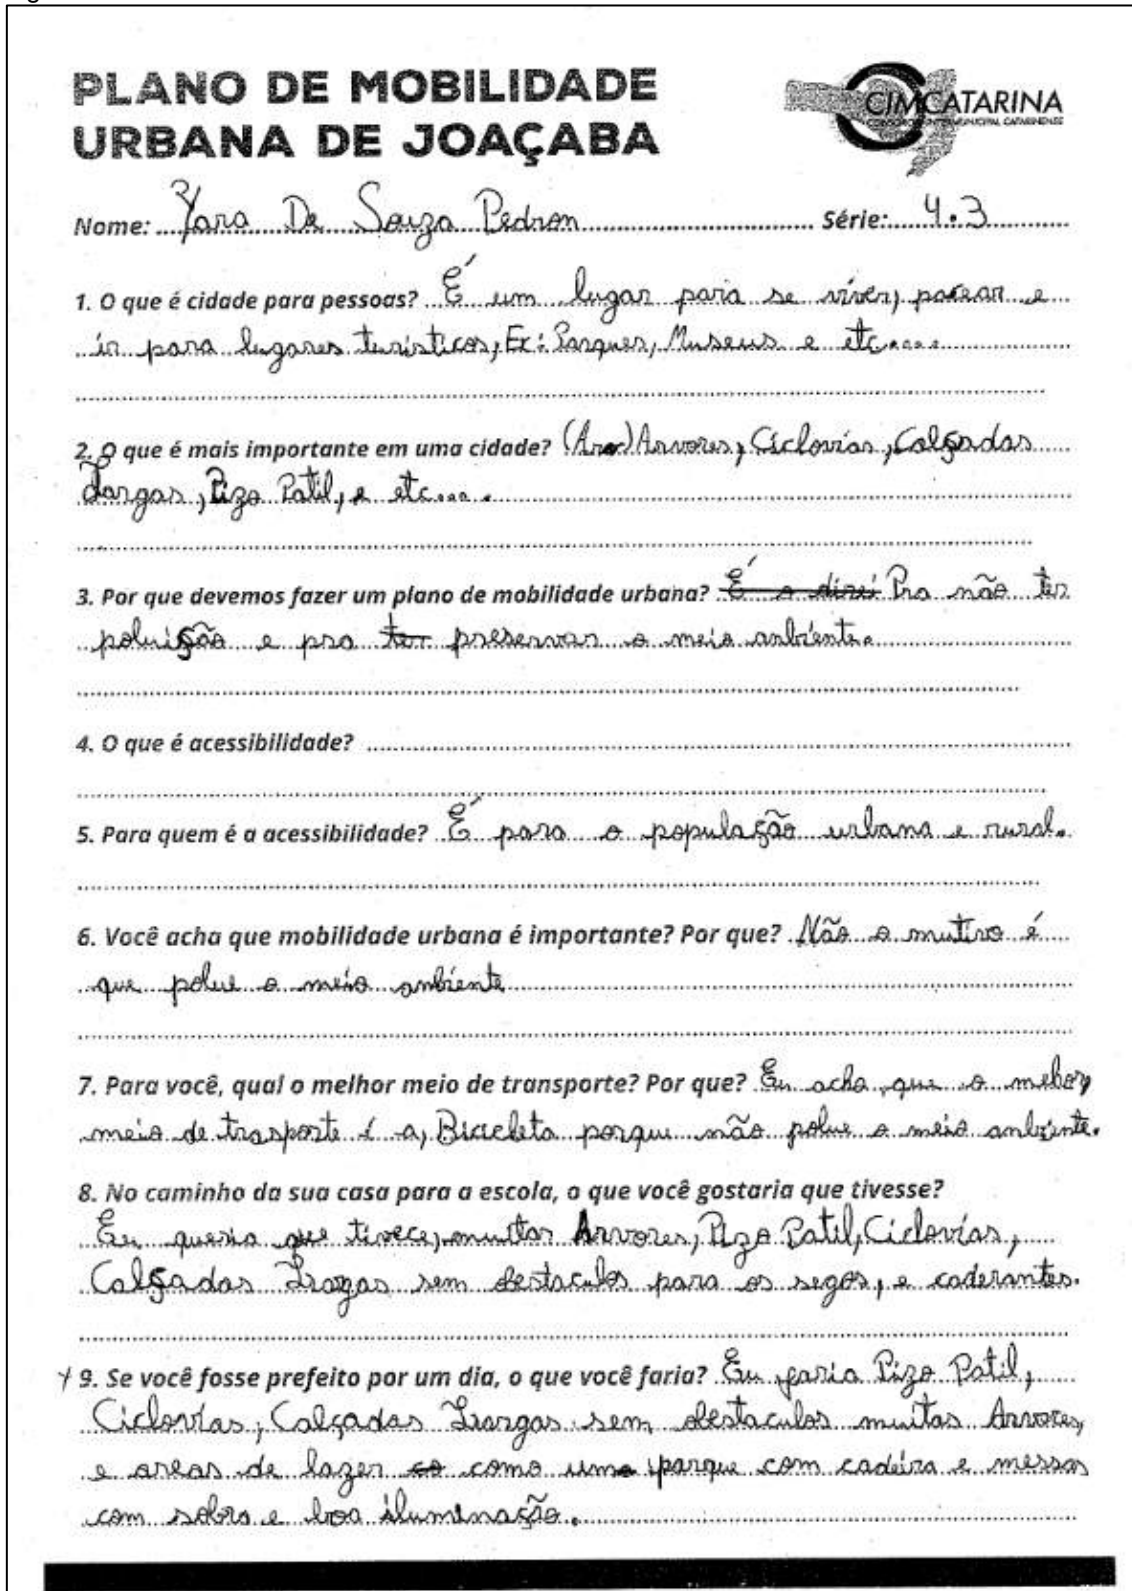 PLANO DE MOBILIDADE
URBANA DE JOAÇABA
CIMCATARINA
CONSÓRCIO INTERMUNICIPAL CATARINENSE
Nome: Yara De Souza Pedron Série: 4.3
1. O que é cidade para pessoas? É um lugar para se viver, pacear e
ir para lugares turísticos, Ex: Parques, Museus e etc....
2. O que é mais importante em uma cidade? (Arv) Arvores, Ciclovias, Calçadas
Largas, Pizo Patil, e etc....
3. Por que devemos fazer um plano de mobilidade urbana? É o direi Pra não ter
poluição e pra ter preservar o meio anbiente.
4. O que é acessibilidade?
5. Para quem é a acessibilidade? É para a população urbana e rural.
6. Você acha que mobilidade urbana é importante? Por que? Não o mutivo é
que polue o meio anbiente
7. Para você, qual o melhor meio de transporte? Por que? Eu acho que o mehor
meio de trasporte é a, Bicicleta porque não polue o meio anbiente.
8. No caminho da sua casa para a escola, o que você gostaria que tivesse?
Eu queria que tivece, muittas Arvores, Pizo Patil, Ciclovias,
Calçadas Lragas sem obstaculos para os segos, e caderantes.
9. Se você fosse prefeito por um dia, o que você faria? Eu faria Pizo Patil,
Ciclovias, Calçadas Lrargas sem obstaculos muitas Arvores,
e areas de lazer co como uma parque com cadeira e messas
com sobra e boa iluminação.